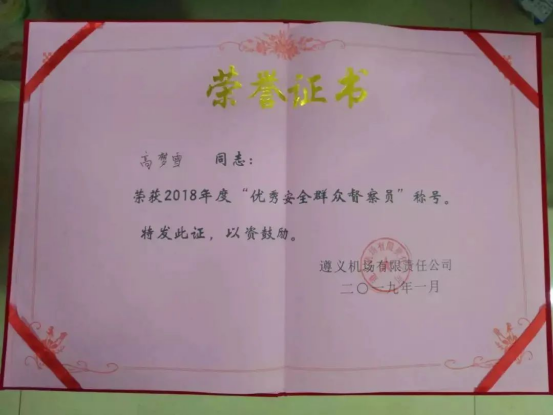 荣誉证书
高梦雪 同志：
荣获2018年度“优秀安全群众督察员”称号。
特发此证，以资鼓励。
遵义机场有限责任公司
二〇一九年一月